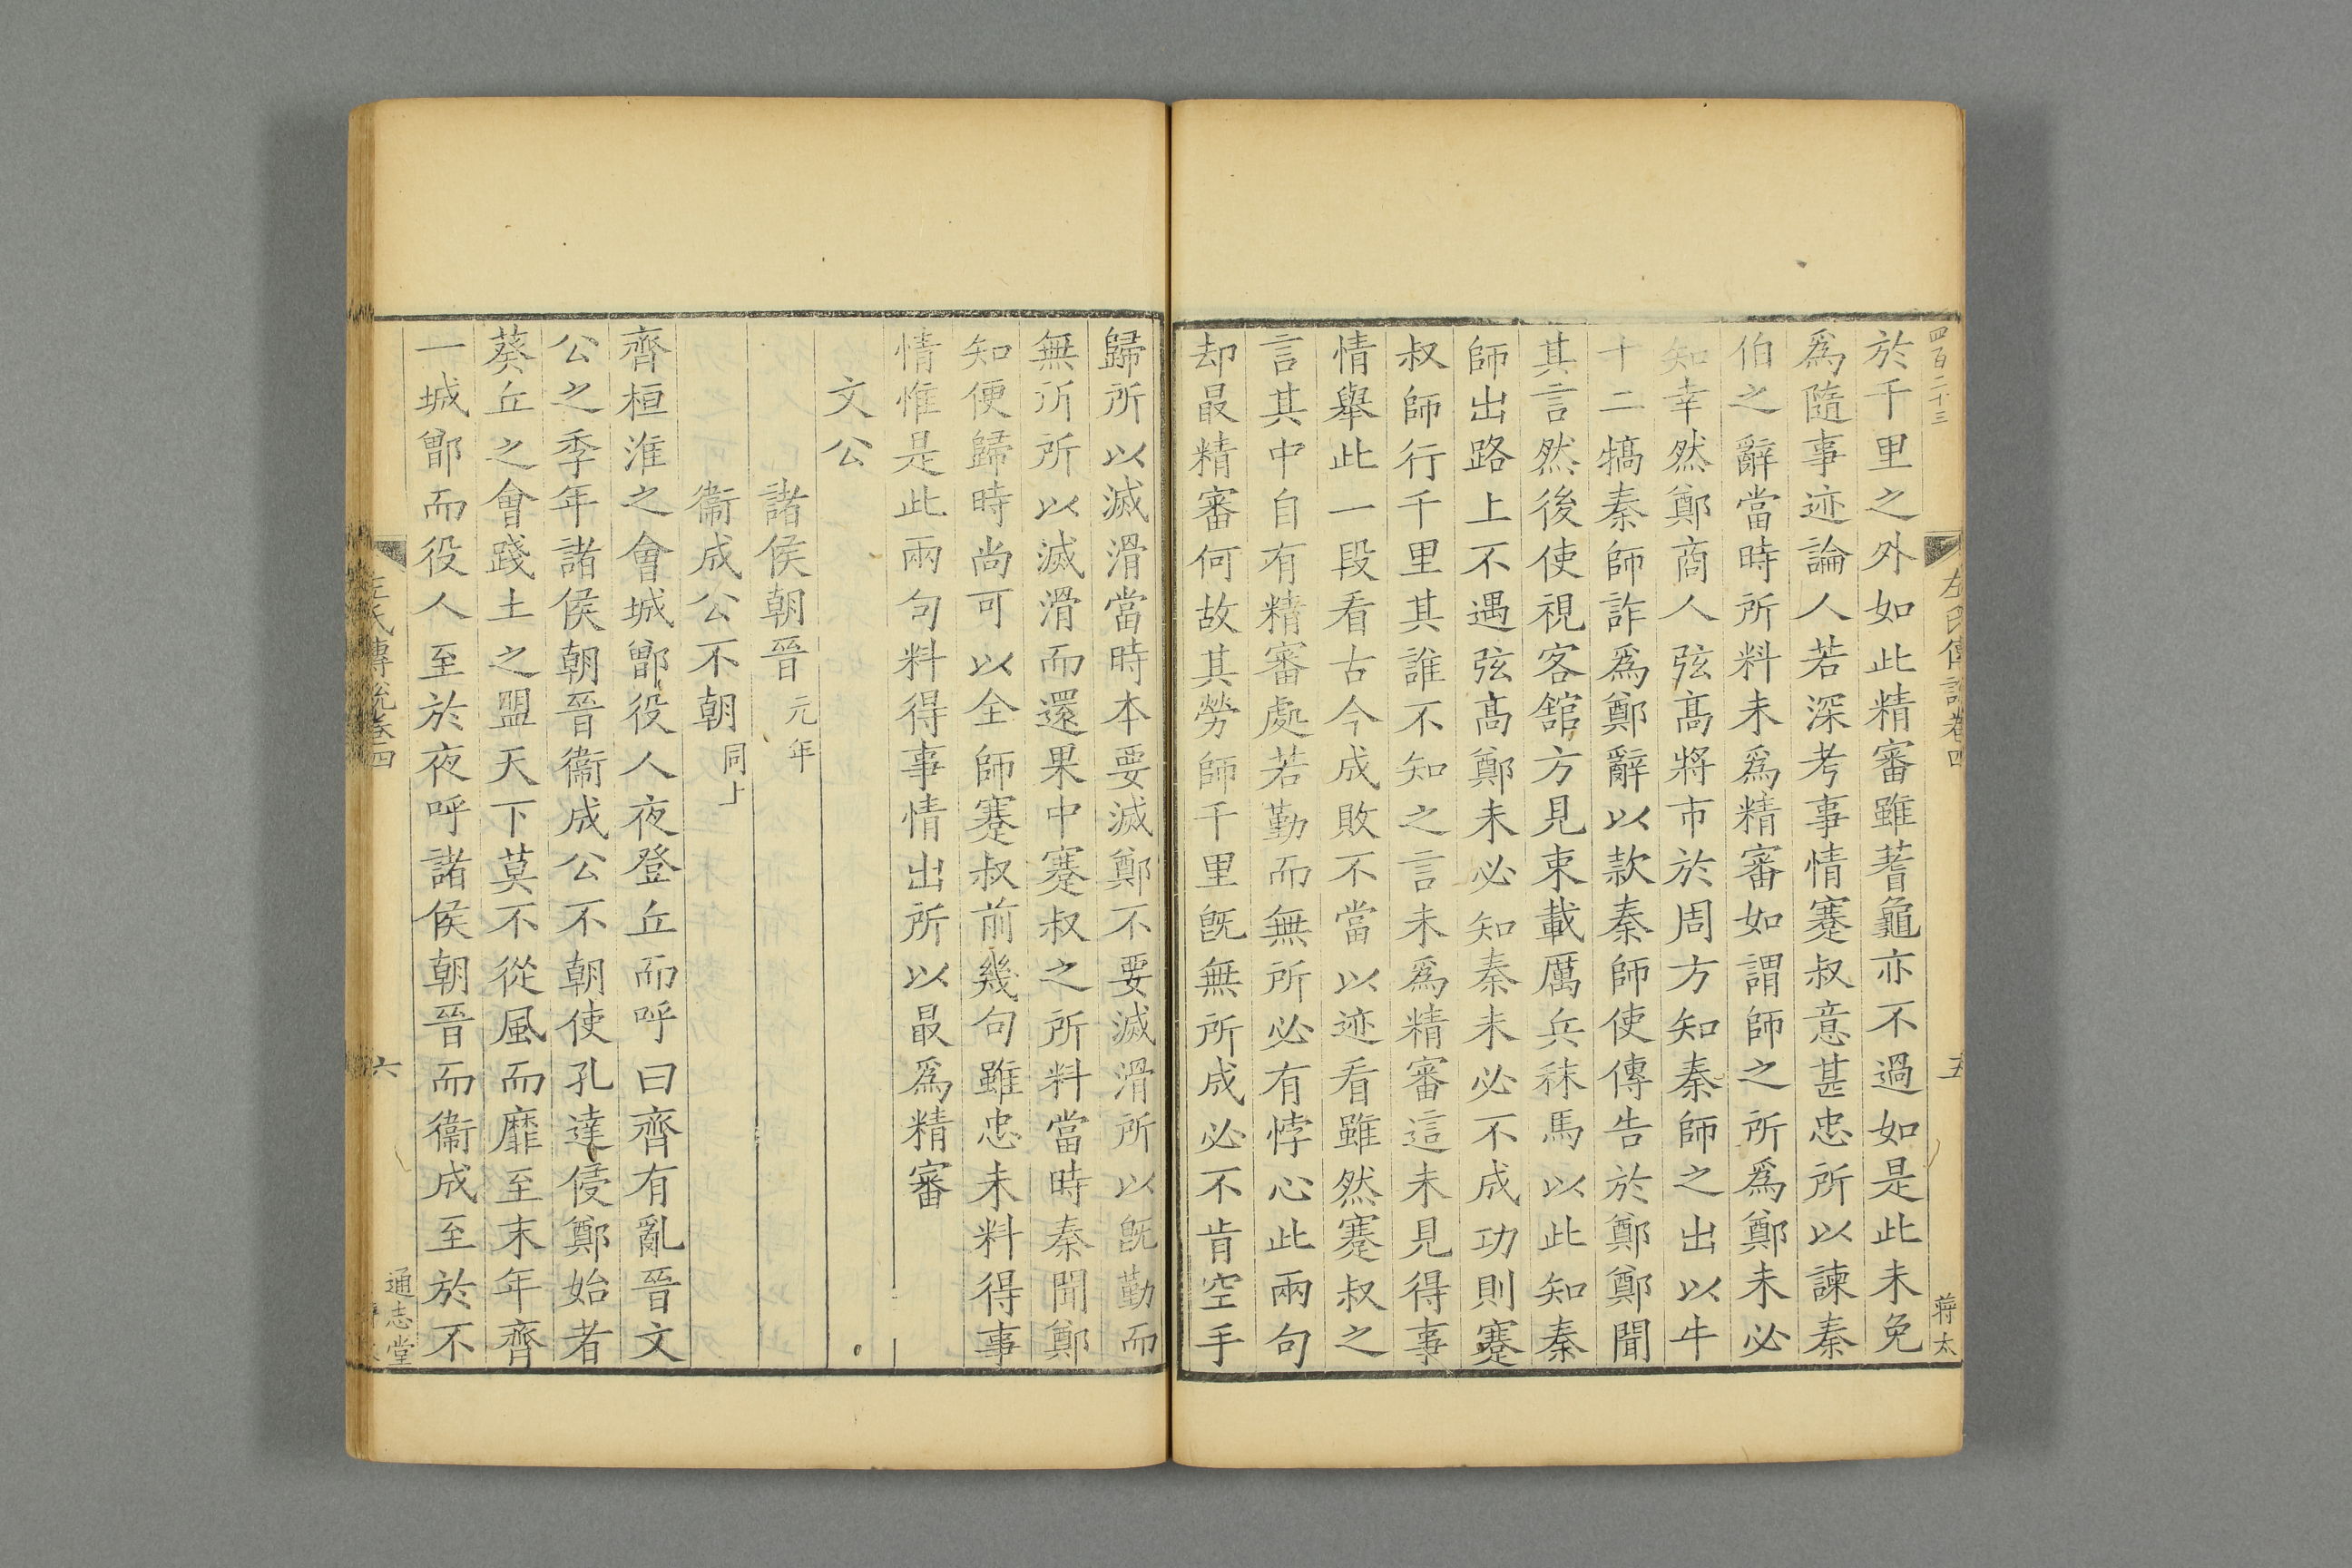 四百二十三
左氏傳說卷四
五
蔣太
於千里之外如此精審雖蓍龜亦不過如是此未免
爲隨事迹論人若深考事情蹇叔意甚忠所以諫秦
伯之辭當時所料未爲精審如謂師之所爲鄭未必
知幸然鄭商人弦高將市於周方知秦師之出以牛
十二犒秦師詐爲鄭辭以款秦師使傳告於鄭鄭聞
其言然後使視客舘方見束載厲兵秣馬以此知秦
師出路上不遇弦高鄭未必知秦未必不成功則蹇
叔師行千里其誰不知之言未爲精審這未見得事
情舉此一段看古今成敗不當以迹看雖然蹇叔之
言其中自有精審處若勤而無所必有悖心此兩句
却最精審何故其勞師千里旣無所成必不肯空手
歸所以滅滑當時本要滅鄭不要滅滑所以旣勤而
無所所以滅滑而還果中蹇叔之所料當時秦聞鄭
知便歸時尚可以全師蹇叔前幾句雖忠未料得事
情惟是此兩句料得事情出所以最爲精審
文公
諸侯朝晉元年
衞成公不朝同上
齊桓淮之會城鄫役人夜登丘而呼曰齊有亂晉文
公之季年諸侯朝晉衞成公不朝使孔達侵鄭始者
葵丘之會踐土之盟天下莫不從風而靡至末年齊
一城鄫而役人至於夜呼諸侯朝晉而衞成至於不
左氏傳說卷四
六
通志堂